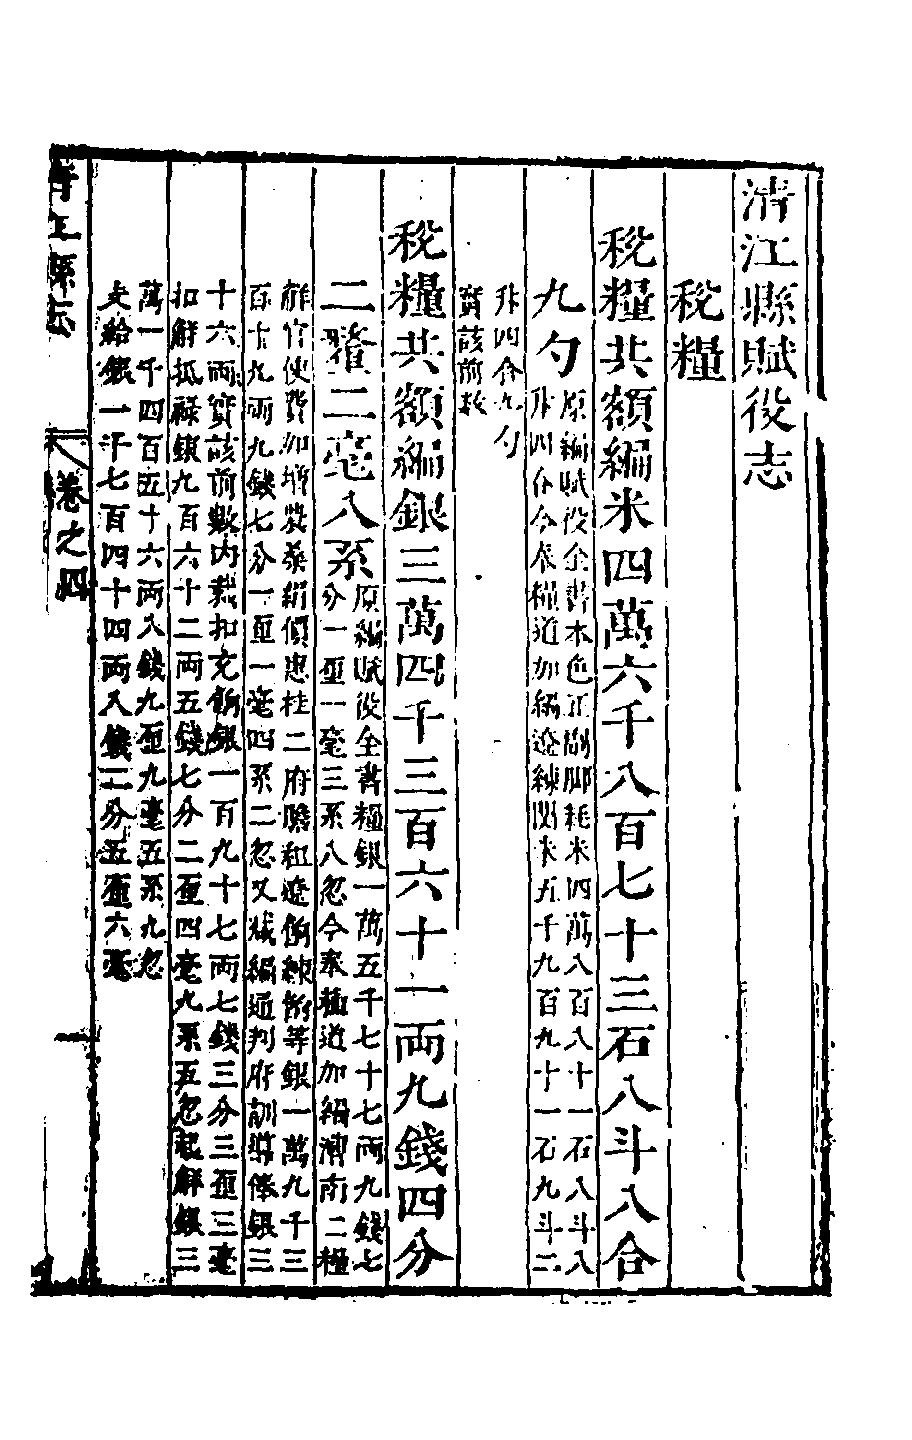 清江縣賦役志
稅糧
稅糧共額編米四萬六千八百七十三石八斗八合
九勺
原編賦役全書本色正副脚耗米四萬八百八十一石八斗八
升四合今奉糧道加編遼練閏米五千九百九十一石九斗二
升四合九勺
實該前數
稅糧共額編銀三萬四千三百六十一兩九錢四分
二釐二毫八系
原編賦役全書糧銀一萬五千七十七兩九錢七
分一厘一毫三系八忽今奉糧道加編漕南二糧
解官使費加增漿桑絹價惠桂二府贍和遼餉練餉等銀一萬九千三
百十九兩九錢七分一厘一毫四系二忽又裁編通判府訓導俸銀三
十六兩實該前數內裁扣充餉銀一百九十七兩七錢三分三厘三毫
扣解抵祿銀九百六十二兩五錢七分二厘四毫九系五忽起解銀三
萬一千四百五十六兩八錢九厘九毫五系九忽
支給銀一千七百四十四兩八錢二分五厘六毫
清江縣志
卷之四
一